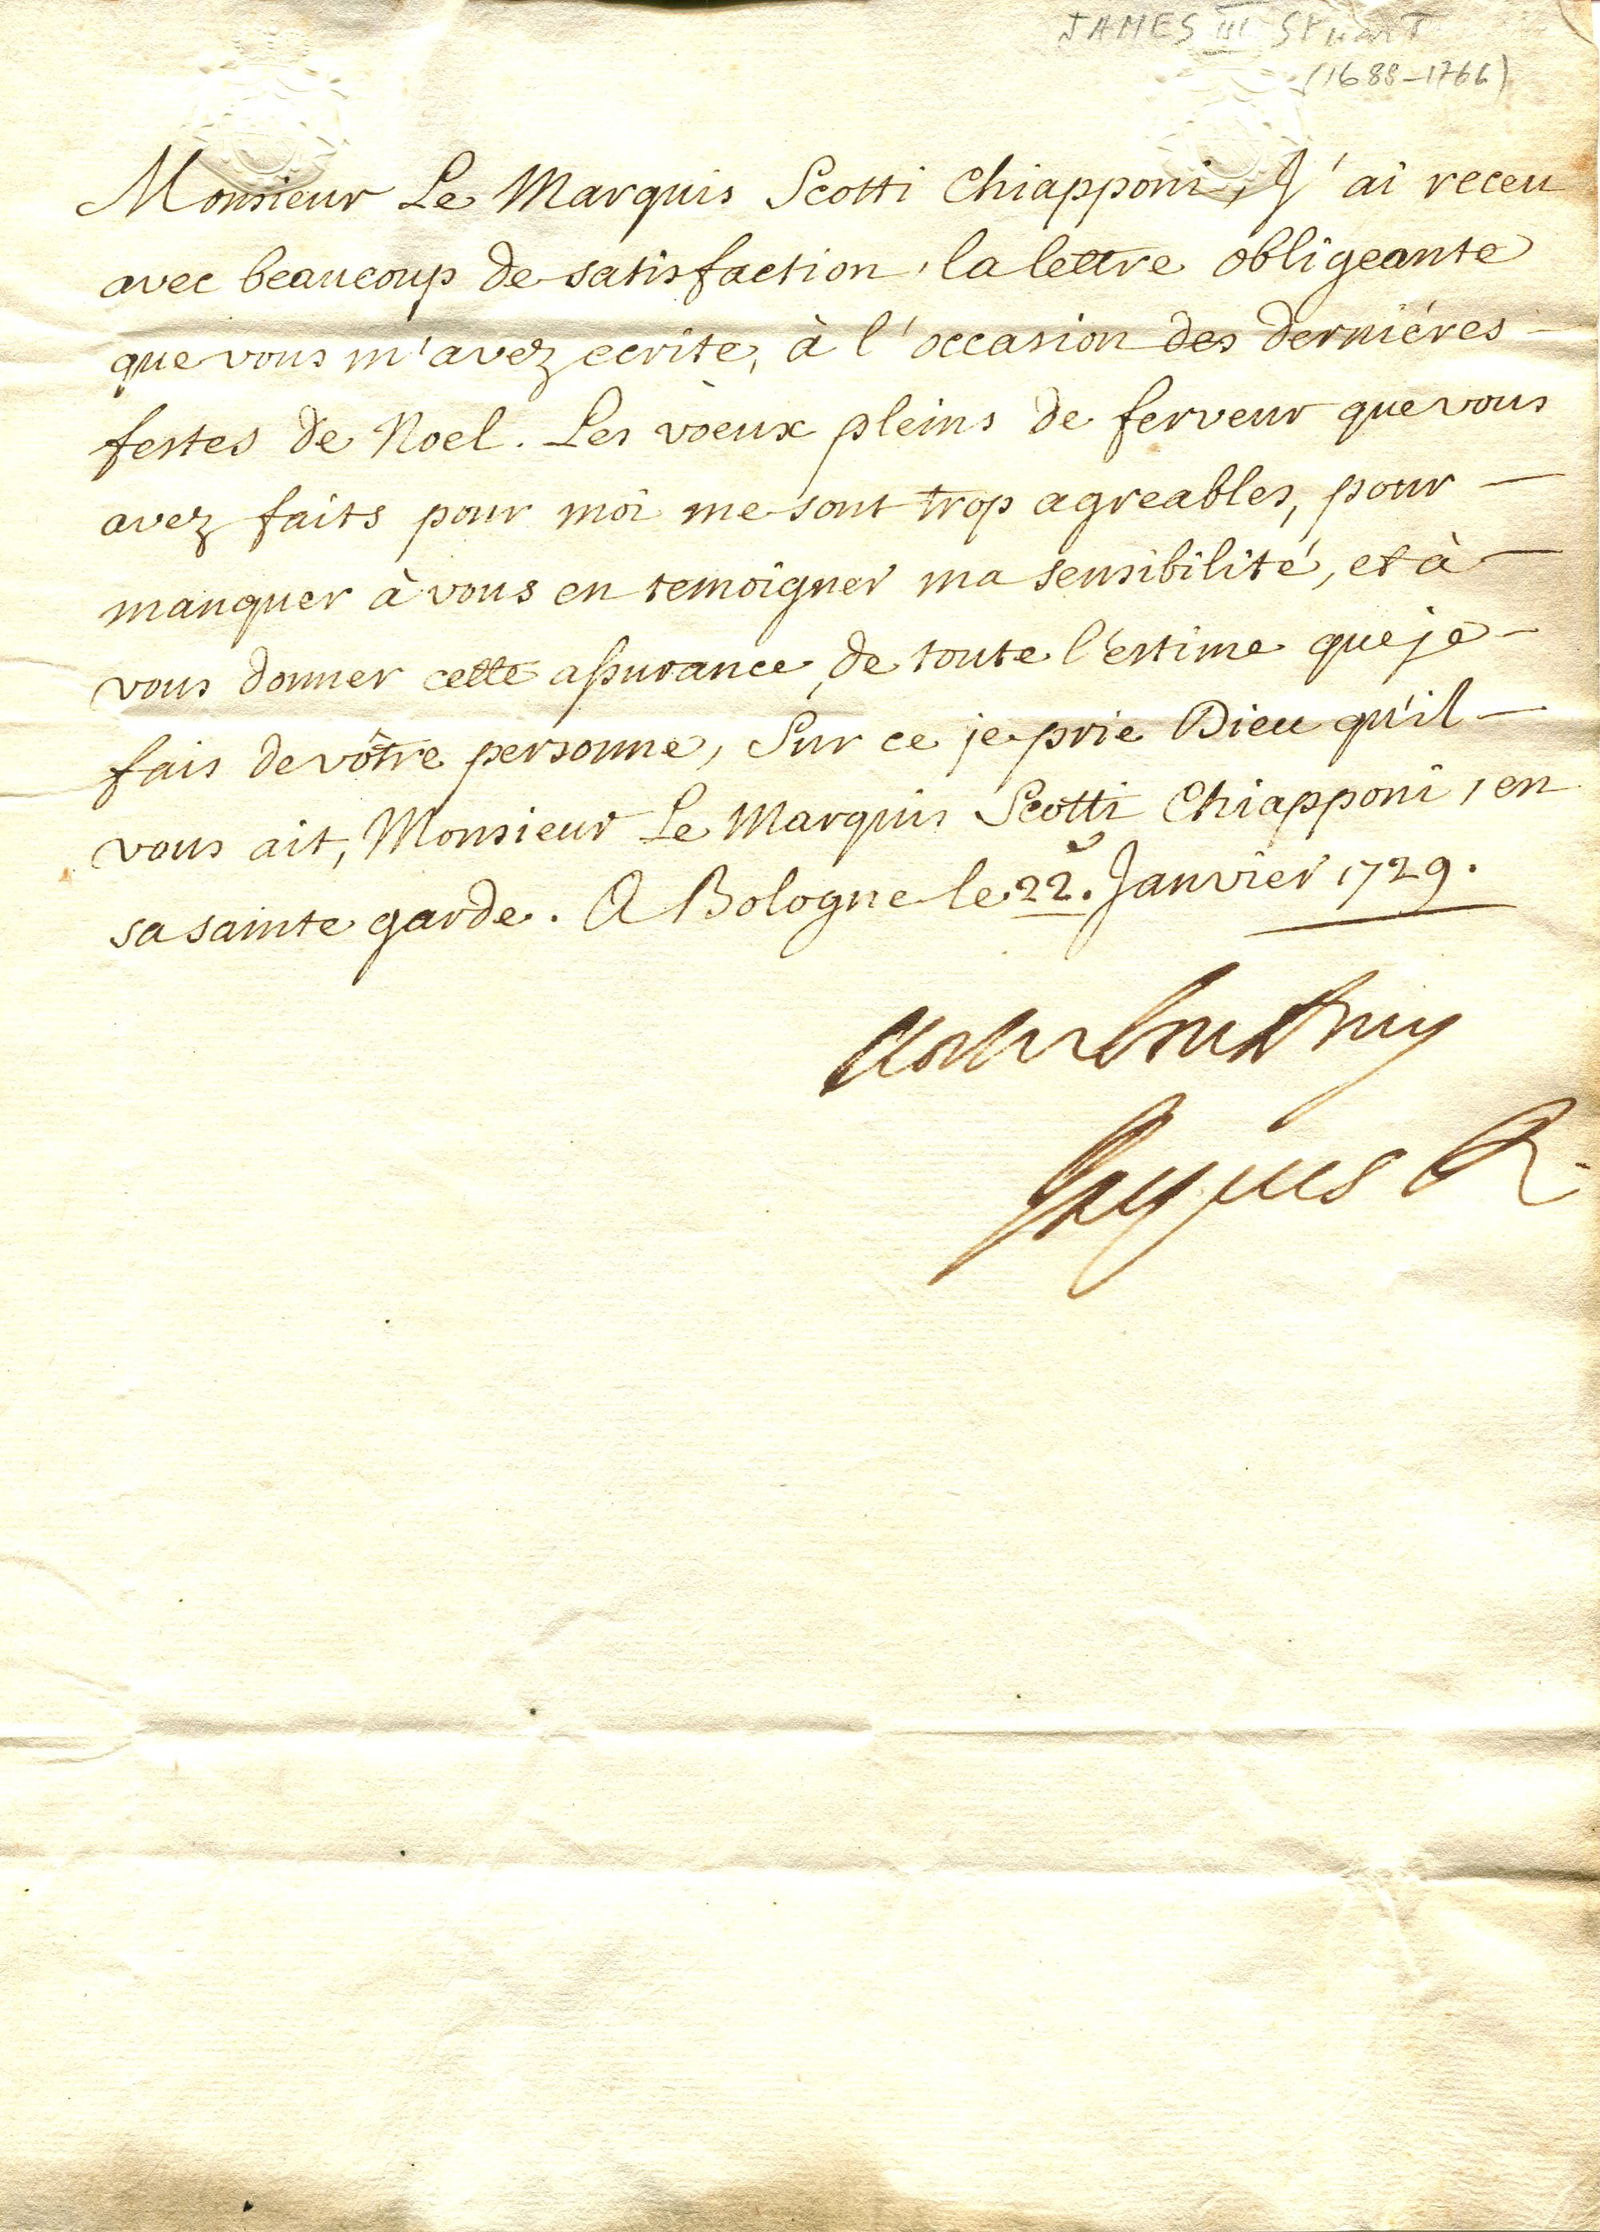 JAMES III STUART
(1688-1766)
Monsieur Le Marquis Scotti Chiapponi, J'ai receu
avec beaucoup de satisfaction, la lettre obligeante
que vous m'avez ecrite, à l'occasion des derniéres —
festes de Noel. Les vœux pleins de ferveur que vous
avez faits pour moi me sont trop agreables, pour —
manquer à vous en temoigner ma sensibilité, et à —
vous donner cette assurance, de toute l'estime que je —
fais de vôtre personne, Sur ce je prie Dieu qu'il —
vous ait, Monsieur Le Marquis Scotti Chiapponi, en
sa sainte garde. A Bologne le 22. Janvier 1729.
Jaques R.